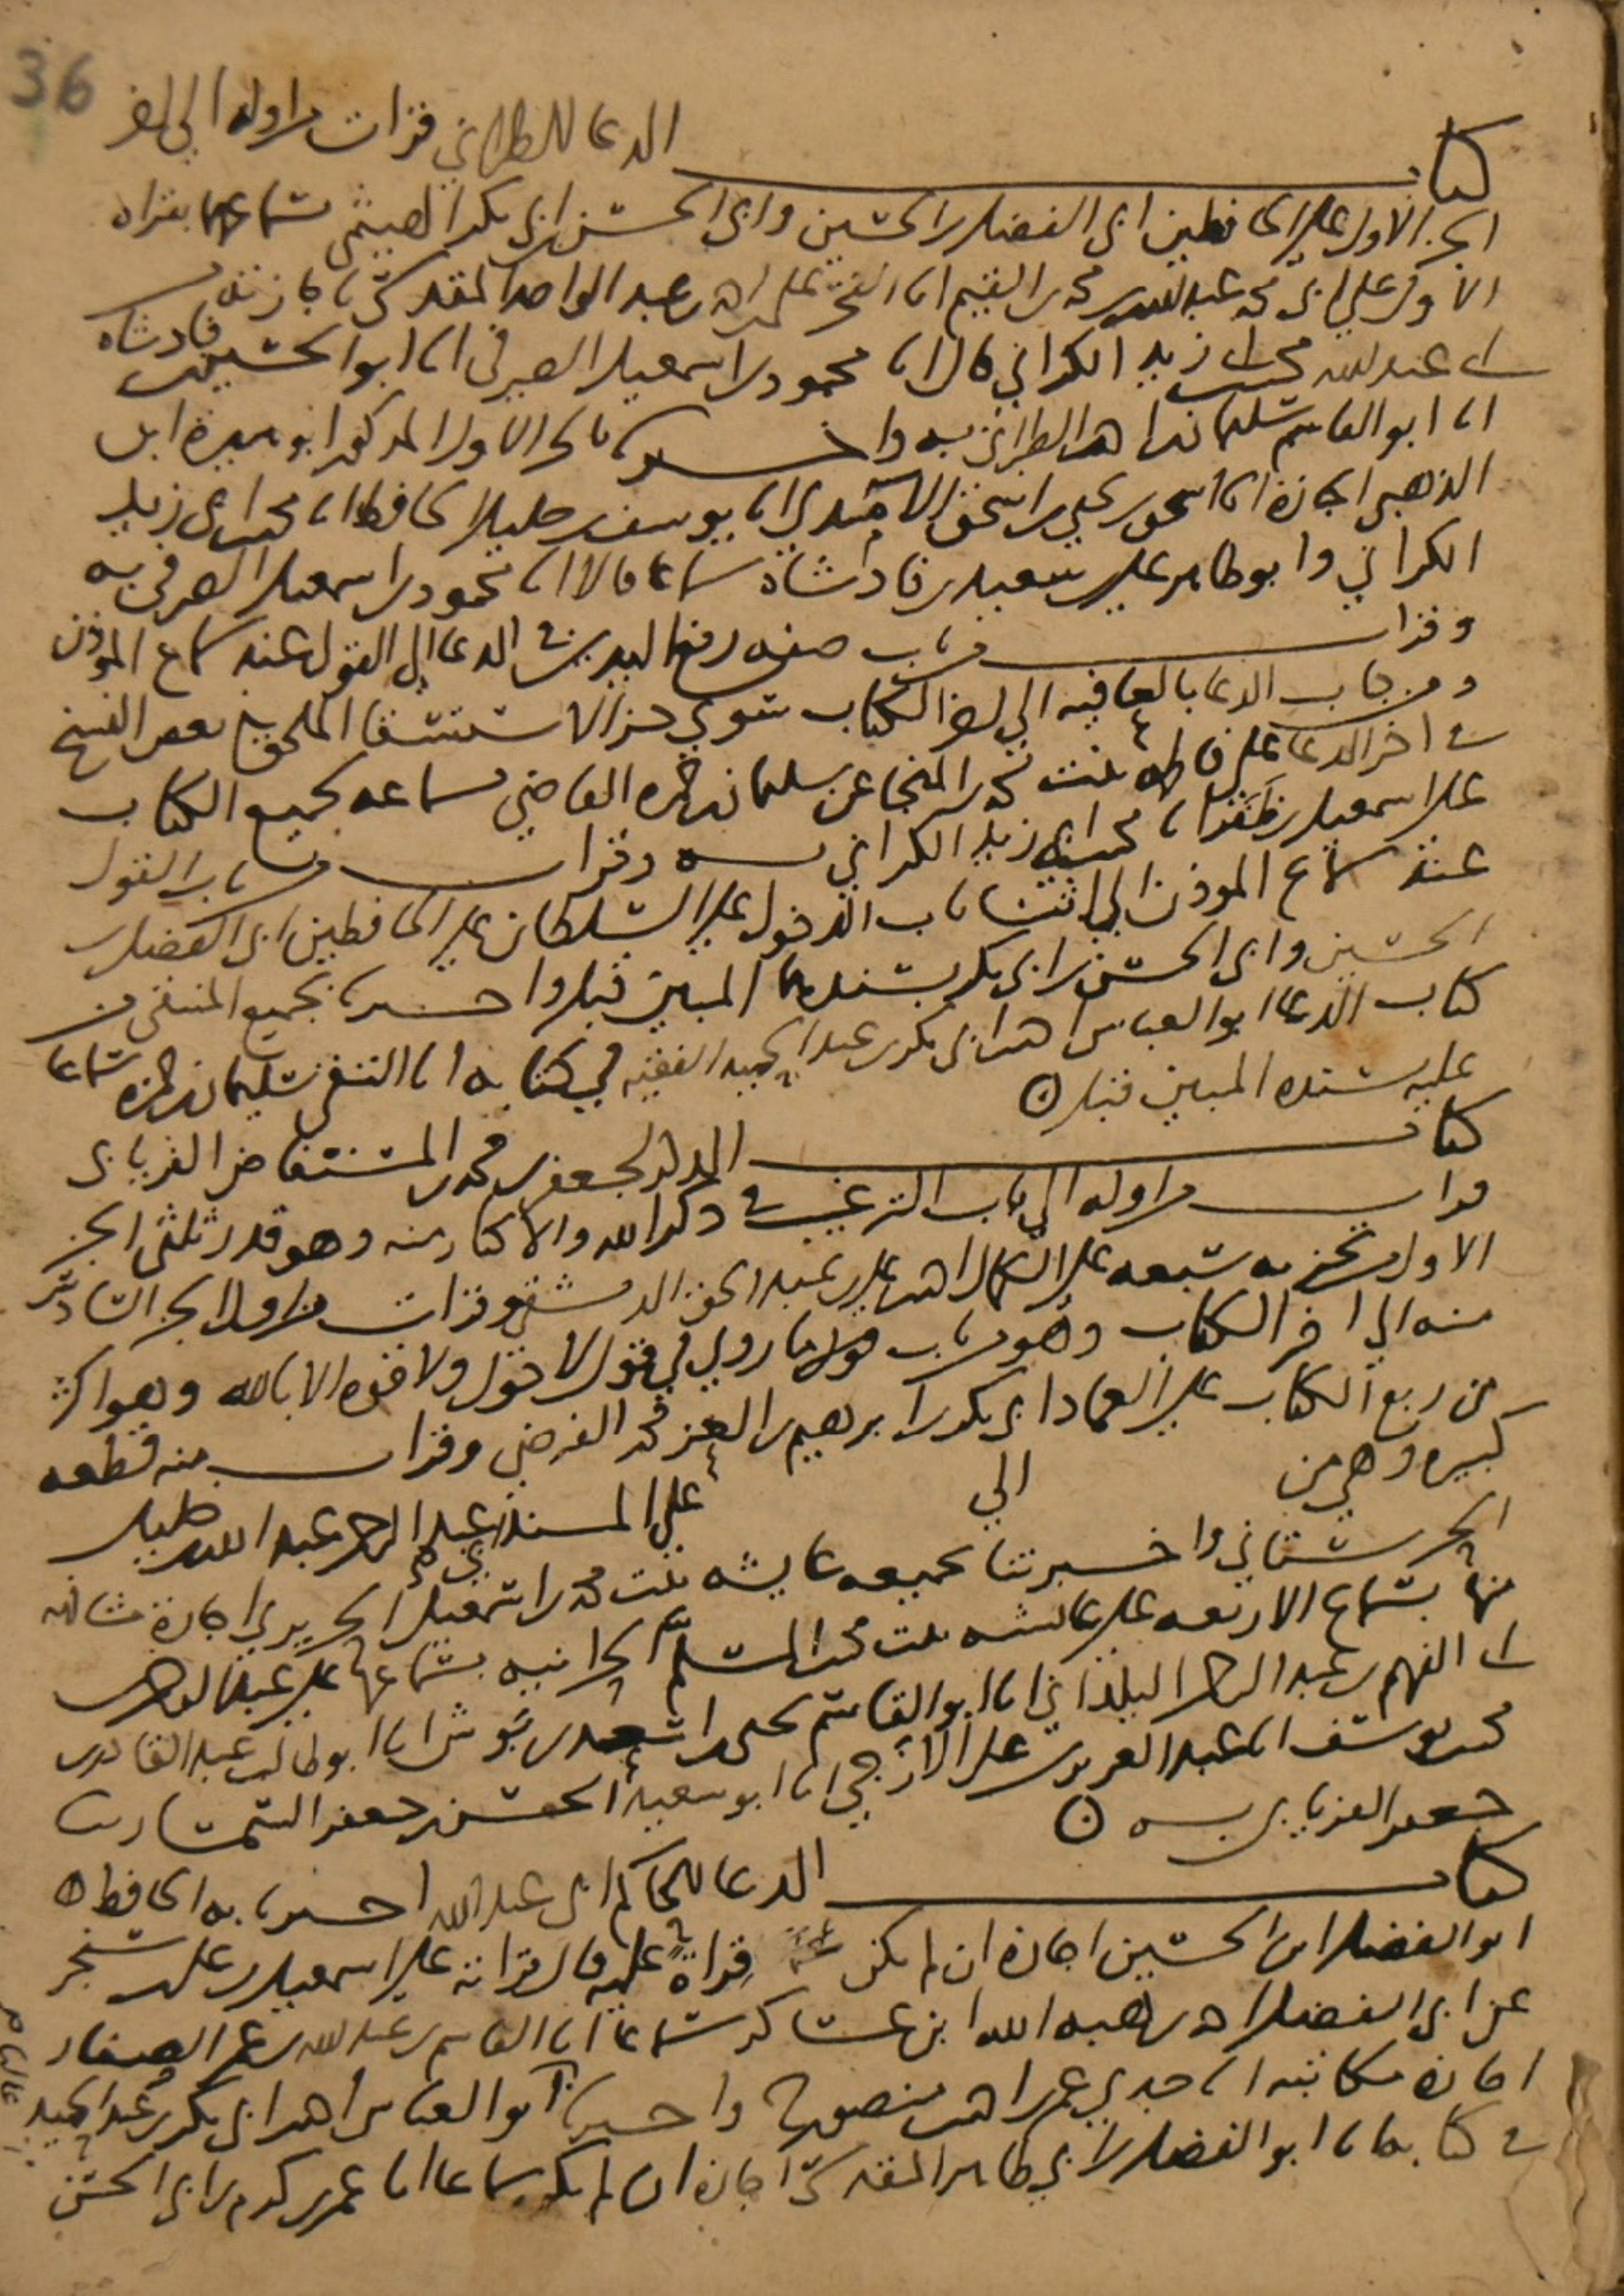 36
كتاب الدعا للطبراني قرات من اوله الي اخر
الجز الاول علي الحافظين ابي الفضل بن الحسين وابي الحسن بن ابي بكر الهيثمي بسماعهما بقراه
الاول علي ابي محمد عبد الله بن محمد بن القيم انا الفخر علي بن احمد بن عبد الواحد المقدسي
بن عبد الله محمد بن ابي زيد الكراني قالا انا محمود بن اسمعيل الصيرفي انا ابو الحسين بن فادشاه
انا ابو القاسم سليمان بن احمد الطبراني به واخبرنا بالجز الاول المذكور ابو هريرة ابن
الذهبي اجازة انا اسحق بن يحيي بن اسحق الامدي انا يوسف بن خليل الحافظ انا محمد بن ابي زيد
الكراني وابو طاهر علي بن سعيد بن فادشاه سماعا قالا انا محمود بن اسمعيل الصيرفي به
وقرات من باب صفه رفع اليدين في الدعا الي القول عند سماع الموذن
ومن باب الدعا بالعافيه الي اخر الكتاب سوي جز الاستسقا الملحق في بعض النسخ
في اخر الدعا علي فاطمه بنت محمد بن المنجا عن سليمان بن حمزه القاضي بسماعه لجميع الكتاب
علي اسمعيل بن ظفر انا محمد بن ابي زيد الكراني به وقرات من باب القول
عند سماع الموذن الي اثنا باب الدخول علي السلطان علي الحافظين ابي الفضل بن
الحسين وابي الحسن بن ابي بكر بسندهما المبين قبل واخبرنا بجميع المنتقي من
كتاب الدعا ابو العباس احمد بن ابي بكر بن عبد الحميد الفقيه في كتابه انا التقي سليمان بن حمزه سماعا
عليه بسنده المبين قبل ه
كتاب الذكر لجعفر بن محمد بن المستفاض الفريابي
قرات من اوله الي باب الترغيب في ذكر الله والاكثار منه وهو قدر ثلثي الجز
الاول من تجزيه سبعه علي الكمال احمد بن علي بن عبد الحق الدمشقي وقرات من اول الجز السادس
منه الي اخر الكتاب وهو من باب ما روي في قول لا حول ولا قوه الا بالله وهو اكثر
من ربع الكتاب علي العماد ابي بكر بن ابرهيم بن العز محمد الفرضي وقرات منه قطعه
كبيره وهي من الي علي المسند عبد الله بن خليل
الحرستاني واخبرتنا بجميعه عايشه بنت محمد بن اسمعيل الحريري اجازة مشافهه
منها بسماع الاربعه علي عائشه بنت محمد بن المسلم الحرانيه بسماعها علي عبد الرحمن
بن ابي الفهم بن عبد الرحمن البلداني انا ابو القاسم يحيي بن اسعد بن بوش انا ابو طالب عبد القادر بن
محمد بن يوسف انا عبد العزيز بن علي الازجي انا ابو سعيد الحسن بن جعفر السمسار
جعفر الفريابي به ه
كتاب الدعا للحاكم ابي عبد الله اخبرنا به الحافظ
ابو الفضل بن الحسين اجازة ان لم يكن قراة عليه قال قراته علي اسمعيل بن علي بن سنجر
عن ابي الفضل احمد بن هبه الله ابن عساكر سماعا انا القاسم بن عبد الله بن عمر الصفار
اجازة مكاتبه انا جدي عمر بن احمد بن منصور ح واخبرنا ابو العباس احمد بن ابي بكر بن عبد الحميد
في كتابه انا ابو الفضل بن ابي طاهر المقدسي اجازة ان لم يكن سماعا انا عمر بن كرم بن ابي الحسن